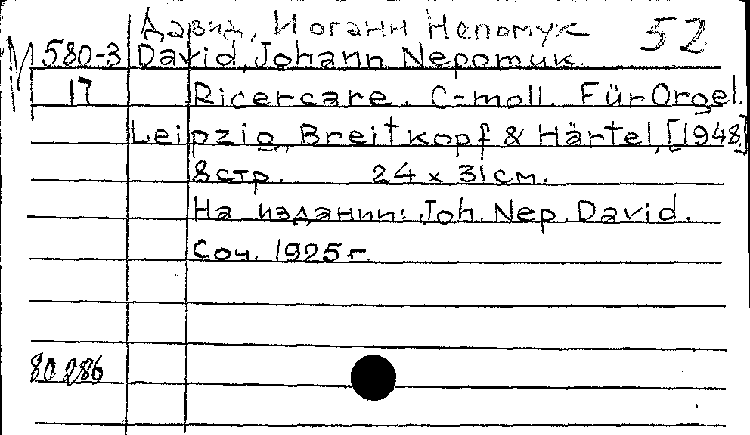 Давид, Иоганн Непомук 52
М 580-3 David, Johann Nepomuk.
17 Ricercare. C-moll. Für Orgel.
Leipzig, Breitkopf & Härtel, [1948]
8 стр. 24 x 31 см.
На издании: Joh. Nep. David.
Соч. 1925 г.
80 286